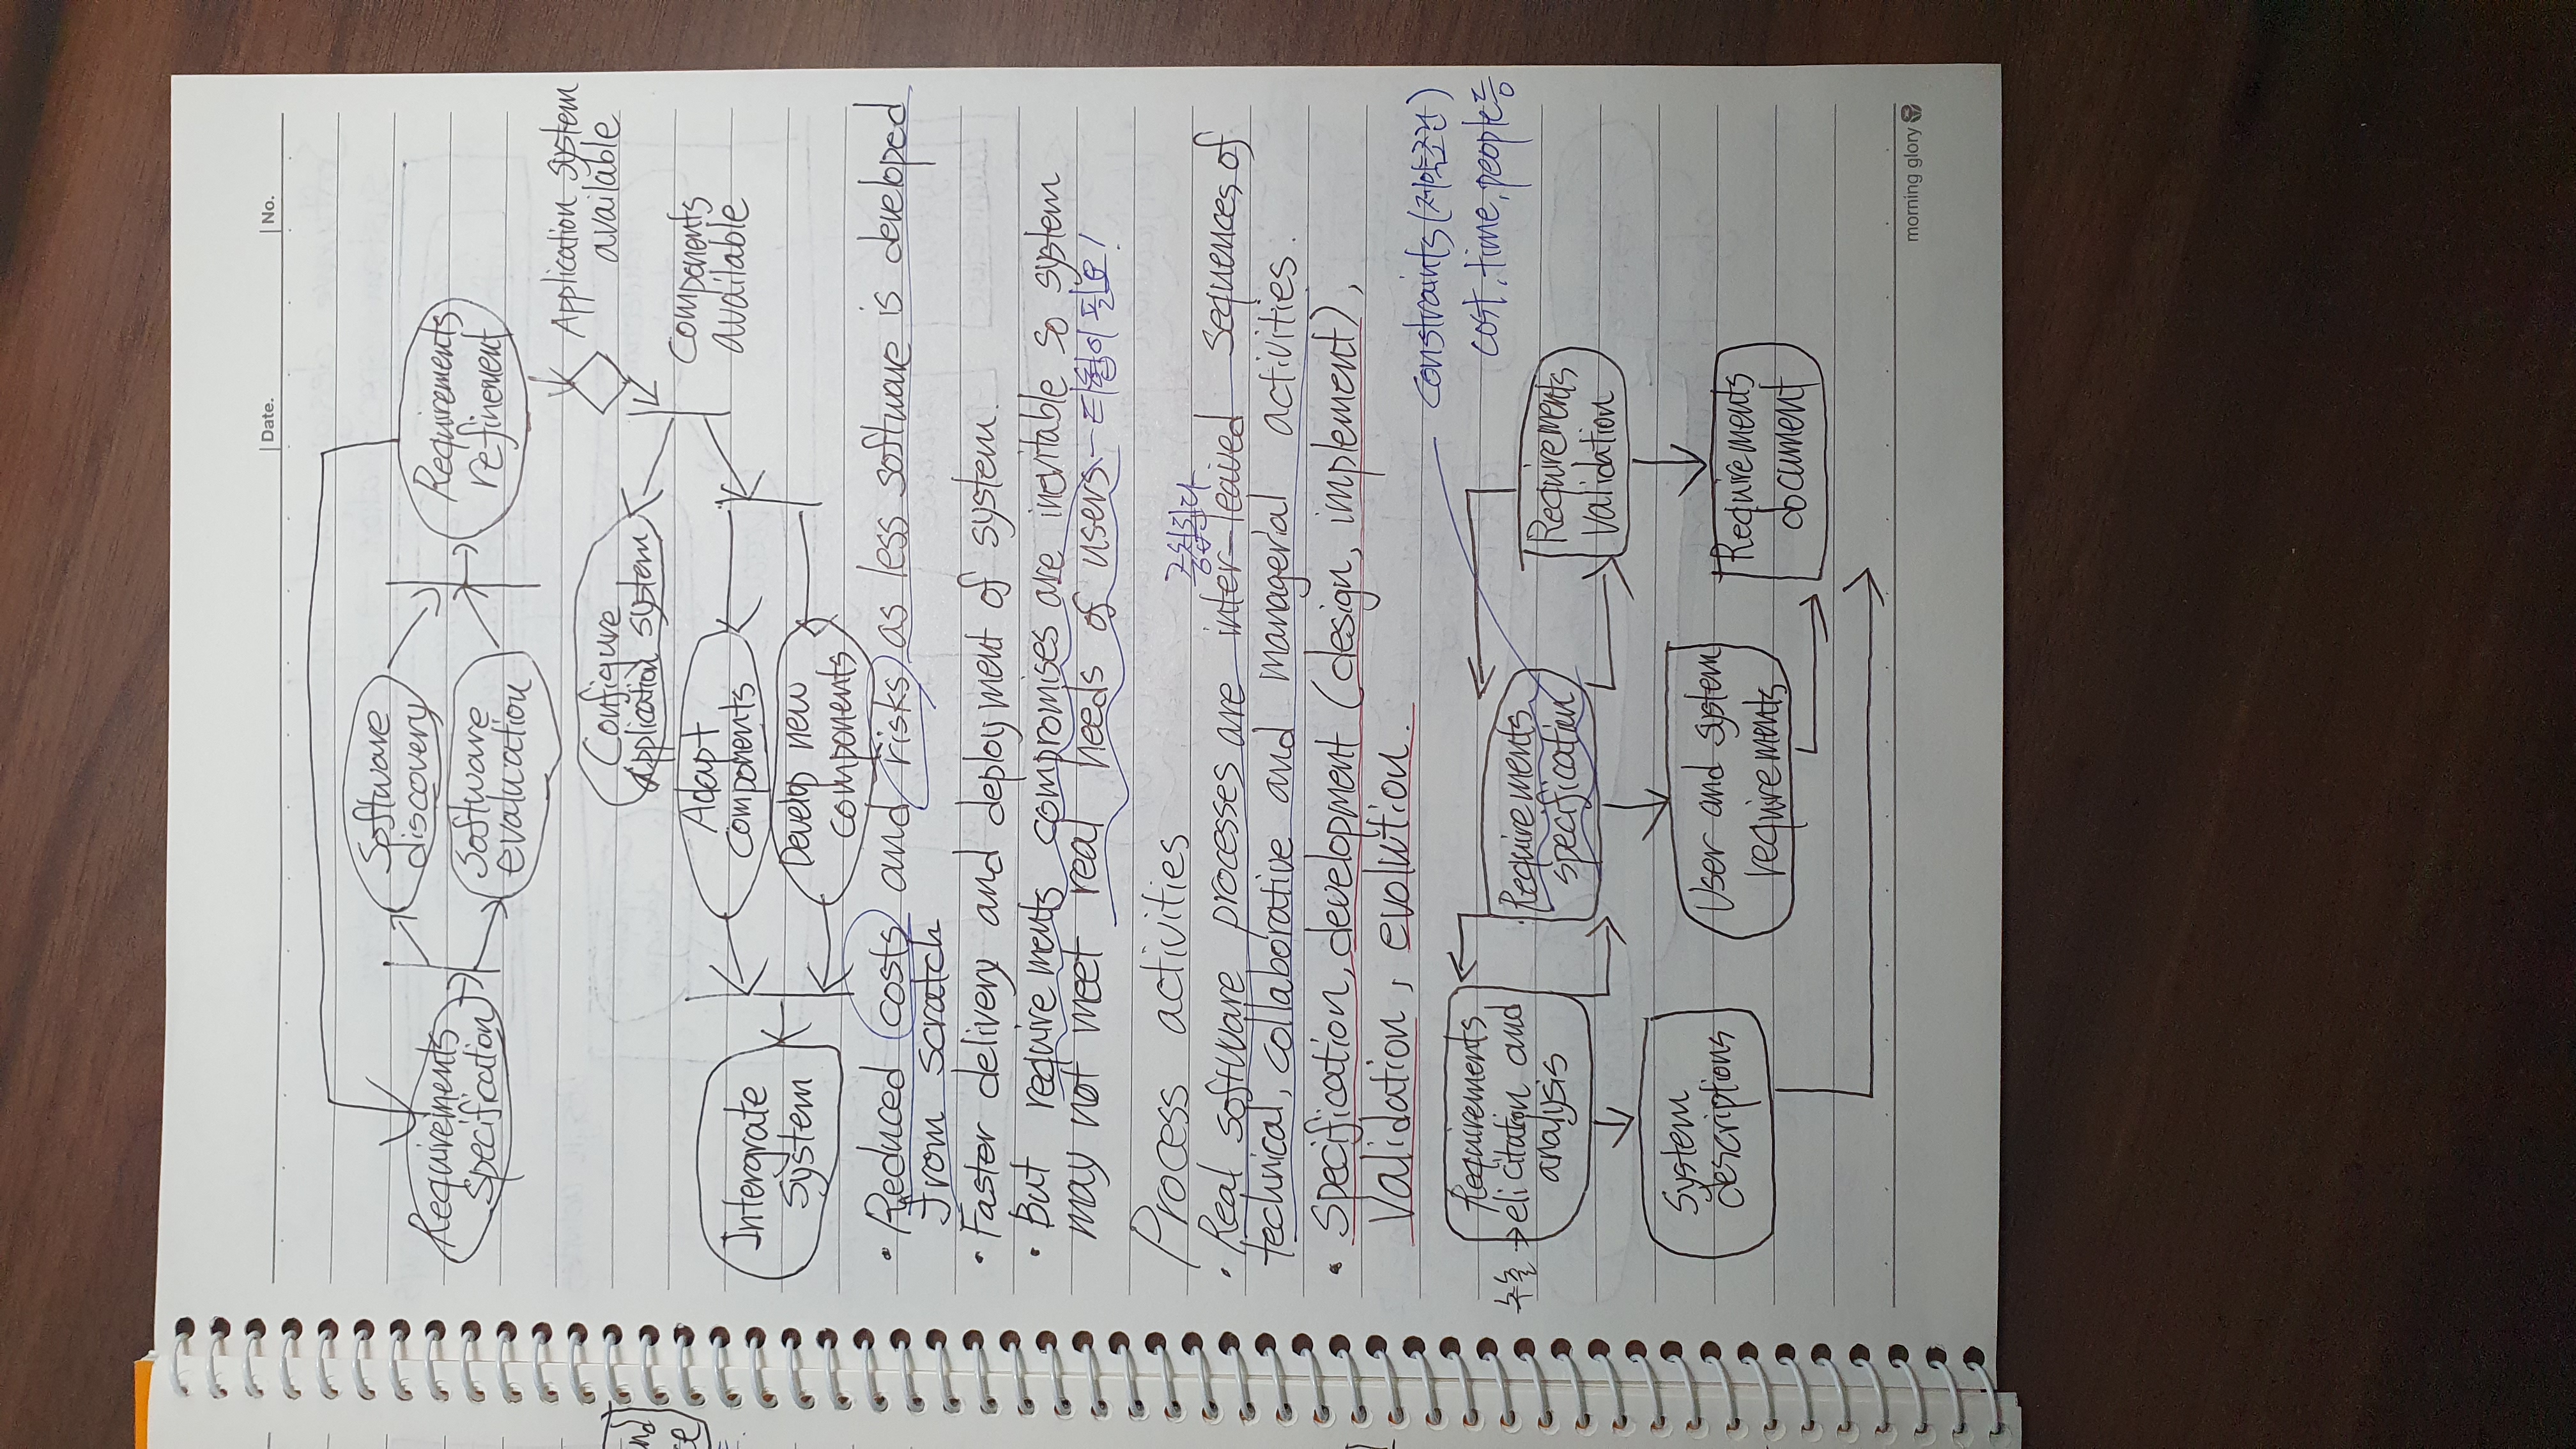 Date.
No.
Software
discovery
Requirements
specification
Software
evaluation
Requirements
refinement
Application system
available
Configure
application system
Components
available
Adapt
components
Intergrate
System
Develop new
components
• Reduced costs and risks as less software is developed
from scratch
• Faster delivery and deployment of system.
• But requirements compromises are inevitable so system
may not meet real needs of users. - 타협이 필요!
Process activities
중첩된다
• Real software processes are inter-leaved sequences of
technical, collaborative and managerial activities.
• Specification, development (design, implement),
Validation, evolution.
constraints (제약조건)
cost, time, people등
Requirements
추출 → elicitation and
analysis
Requirements
specification
Requirements
validation
System
descriptions
User and system
requirements
Requirements
document
morning glory